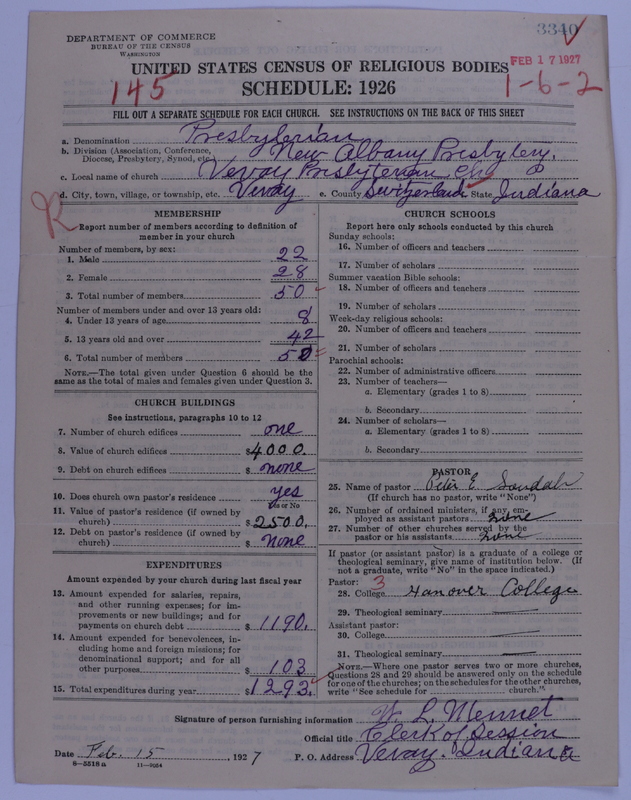 3340
DEPARTMENT OF COMMERCE
BUREAU OF THE CENSUS
WASHINGTON
FEB 17 1927
UNITED STATES CENSUS OF RELIGIOUS BODIES
145
SCHEDULE: 1926
1-6-2
FILL OUT A SEPARATE SCHEDULE FOR EACH CHURCH. SEE INSTRUCTIONS ON THE BACK OF THIS SHEET
a. Denomination Presbyterian
b. Division (Association, Conference, Diocese, Presbytery, Synod, etc.) New Albany Presbytery.
c. Local name of church Vevay Presbyterian Chg
d. City, town, village, or township, etc. Vevay e. County Switzerland State Indiana
R
MEMBERSHIP
Report number of members according to definition of
member in your church
Number of members, by sex:
1. Male 22
2. Female 28
3. Total number of members 50
Number of members under and over 13 years old:
4. Under 13 years of age 8
5. 13 years old and over 42
6. Total number of members 50
NOTE.—The total given under Question 6 should be the
same as the total of males and females given under Question 3.
CHURCH BUILDINGS
See instructions, paragraphs 10 to 12
7. Number of church edifices one
8. Value of church edifices $4000.
9. Debt on church edifices $ none
10. Does church own pastor's residence yes
Yes or No
11. Value of pastor's residence (if owned by
church) $2500.
12. Debt on pastor's residence (if owned by
church) $ none
EXPENDITURES
Amount expended by your church during last fiscal year
13. Amount expended for salaries, repairs,
and other running expenses; for im-
provements or new buildings; and for
payments on church debt $ 1190.
14. Amount expended for benevolences, in-
cluding home and foreign missions; for
denominational support; and for all
other purposes $ 103
15. Total expenditures during year $1293.
CHURCH SCHOOLS
Report here only schools conducted by this church
Sunday schools:
16. Number of officers and teachers
17. Number of scholars
Summer vacation Bible schools:
18. Number of officers and teachers
19. Number of scholars
Week-day religious schools:
20. Number of officers and teachers
21. Number of scholars
Parochial schools:
22. Number of administrative officers
23. Number of teachers—
a. Elementary (grades 1 to 8)
b. Secondary
24. Number of scholars—
a. Elementary (grades 1 to 8)
b. Secondary
PASTOR
25. Name of pastor Peter E
(If church has no pastor, write "None")
26. Number of ordained ministers, if any, em-
ployed as assistant pastors none
27. Number of other churches served by the
pastor or his assistants none
If pastor (or assistant pastor) is a graduate of a college or
theological seminary, give name of institution below. (If
not a graduate, write "No" in the space indicated.)
Pastor: 3
28. College Hanover College
29. Theological seminary
Assistant pastor:
30. College
31. Theological seminary
NOTE.—Where one pastor serves two or more churches,
Questions 28 and 29 should be answered only on the schedule
for one of the churches; on the schedules for the other churches,
write "See schedule for church."
Signature of person furnishing information L. Mennet
Official title Clerk of Session
Date Feb. 15, 1927 P. O. Address Vevay. Indiana
8—5518 a 11—9054